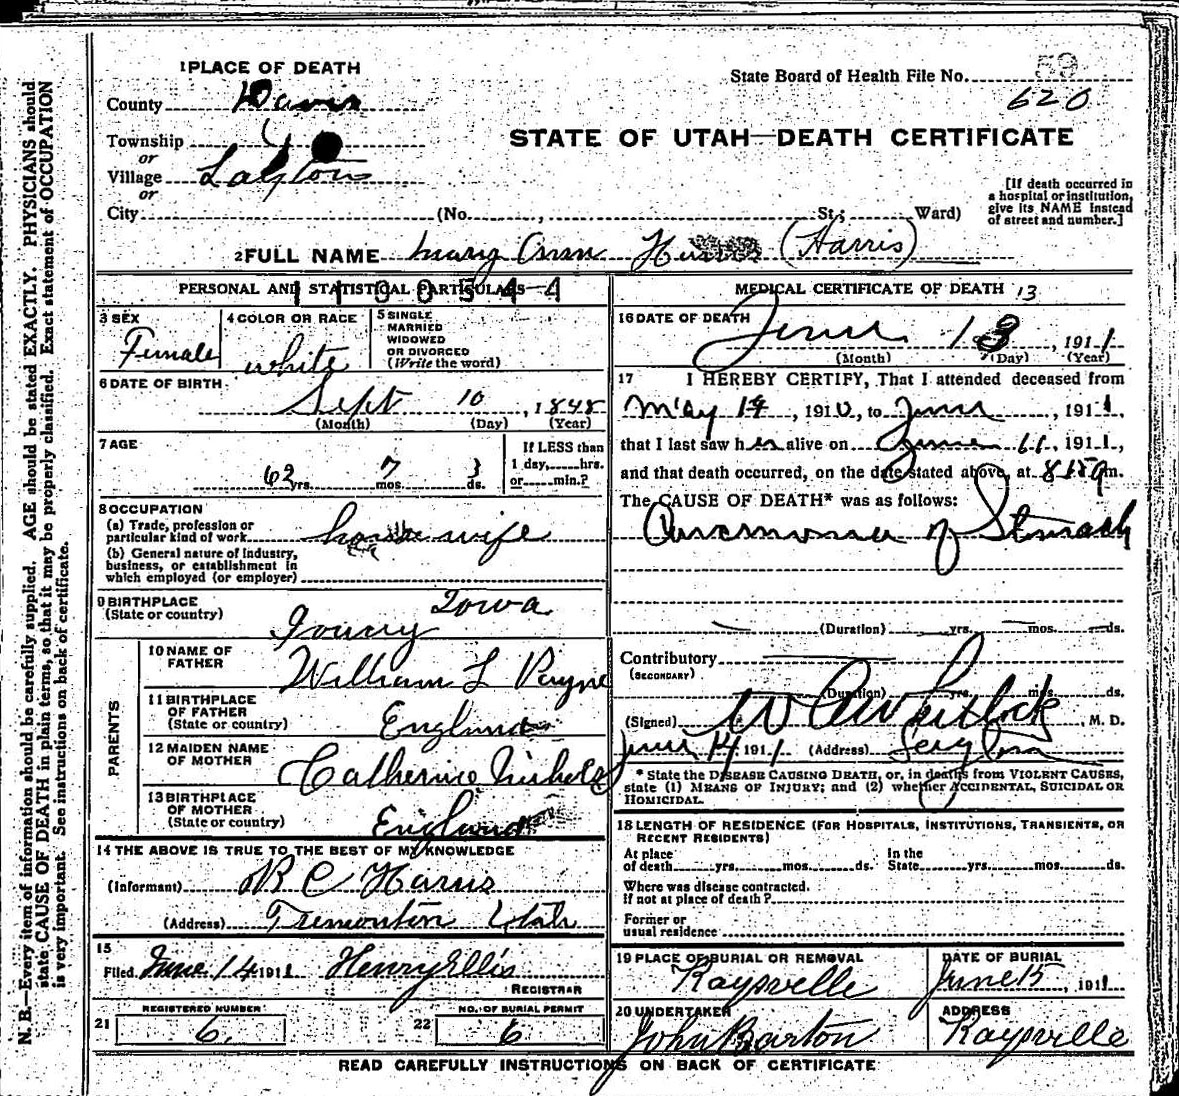 1 PLACE OF DEATH
State Board of Health File No. 59
620
County Davis
STATE OF UTAH—DEATH CERTIFICATE
Township
or
Village Layton
or
City (No. , St.; Ward)
[If death occurred in a hospital or institution, give its NAME instead of street and number.]
2 FULL NAME Mary Ann (Harris)
PERSONAL AND STATISTICAL PARTICULARS
1100544
MEDICAL CERTIFICATE OF DEATH 13
3 SEX
Female
4 COLOR OR RACE
white
5 SINGLE
MARRIED
WIDOWED
OR DIVORCED
(Write the word)
6 DATE OF BIRTH
Sept 10, 1848
(Month) (Day) (Year)
7 AGE
62 yrs. 7 mos. 3 ds.
If LESS than
1 day, hrs.
or min.?
8 OCCUPATION
(a) Trade, profession or
particular kind of work house wife
(b) General nature of industry,
business, or establishment in
which employed (or employer)
9 BIRTHPLACE
(State or country)
Iowa
10 NAME OF
FATHER
William L Payne
11 BIRTHPLACE
OF FATHER
(State or country)
England
12 MAIDEN NAME
OF MOTHER
Catherine Nichols
13 BIRTHPLACE
OF MOTHER
(State or country)
England
PARENTS
14 THE ABOVE IS TRUE TO THE BEST OF MY KNOWLEDGE
(Informant) R C Harris
(Address) Tremonton Utah
15
Filed June 14 1911 Henry Ellis
REGISTRAR
REGISTERED NUMBER
21 6.
NO. OF BURIAL PERMIT
22 6
16 DATE OF DEATH
June 13, 1911
(Month) (Day) (Year)
17 I HEREBY CERTIFY, That I attended deceased from
May 19, 1910, to June, 1911,
that I last saw her alive on June 11, 1911,
and that death occurred, on the date stated above, at m.
The CAUSE OF DEATH* was as follows:
Carcinoma of Stomach
(Duration) yrs. mos. ds.
Contributory
(SECONDARY)
(Duration) yrs. mos. ds.
(Signed) W A Whitlock, M. D.
June 14 1911 (Address) Layton
* State the DISEASE CAUSING DEATH, or, in deaths from VIOLENT CAUSES,
state (1) MEANS OF INJURY; and (2) whether ACCIDENTAL, SUICIDAL OR
HOMICIDAL.
18 LENGTH OF RESIDENCE (FOR HOSPITALS, INSTITUTIONS, TRANSIENTS, OR
RECENT RESIDENTS)
At place
of death yrs. mos. ds. In the
State yrs. mos. ds.
Where was disease contracted.
If not at place of death?
Former or
usual residence
19 PLACE OF BURIAL OR REMOVAL
Kaysville
DATE OF BURIAL
June 15, 1911
20 UNDERTAKER
John Barton
ADDRESS
Kaysville
READ CAREFULLY INSTRUCTIONS ON BACK OF CERTIFICATE
N. B.—Every item of information should be carefully supplied. AGE should be stated EXACTLY. PHYSICIANS should
state CAUSE OF DEATH in plain terms, so that it may be properly classified. Exact statement of OCCUPATION
is very important. See instructions on back of certificate.